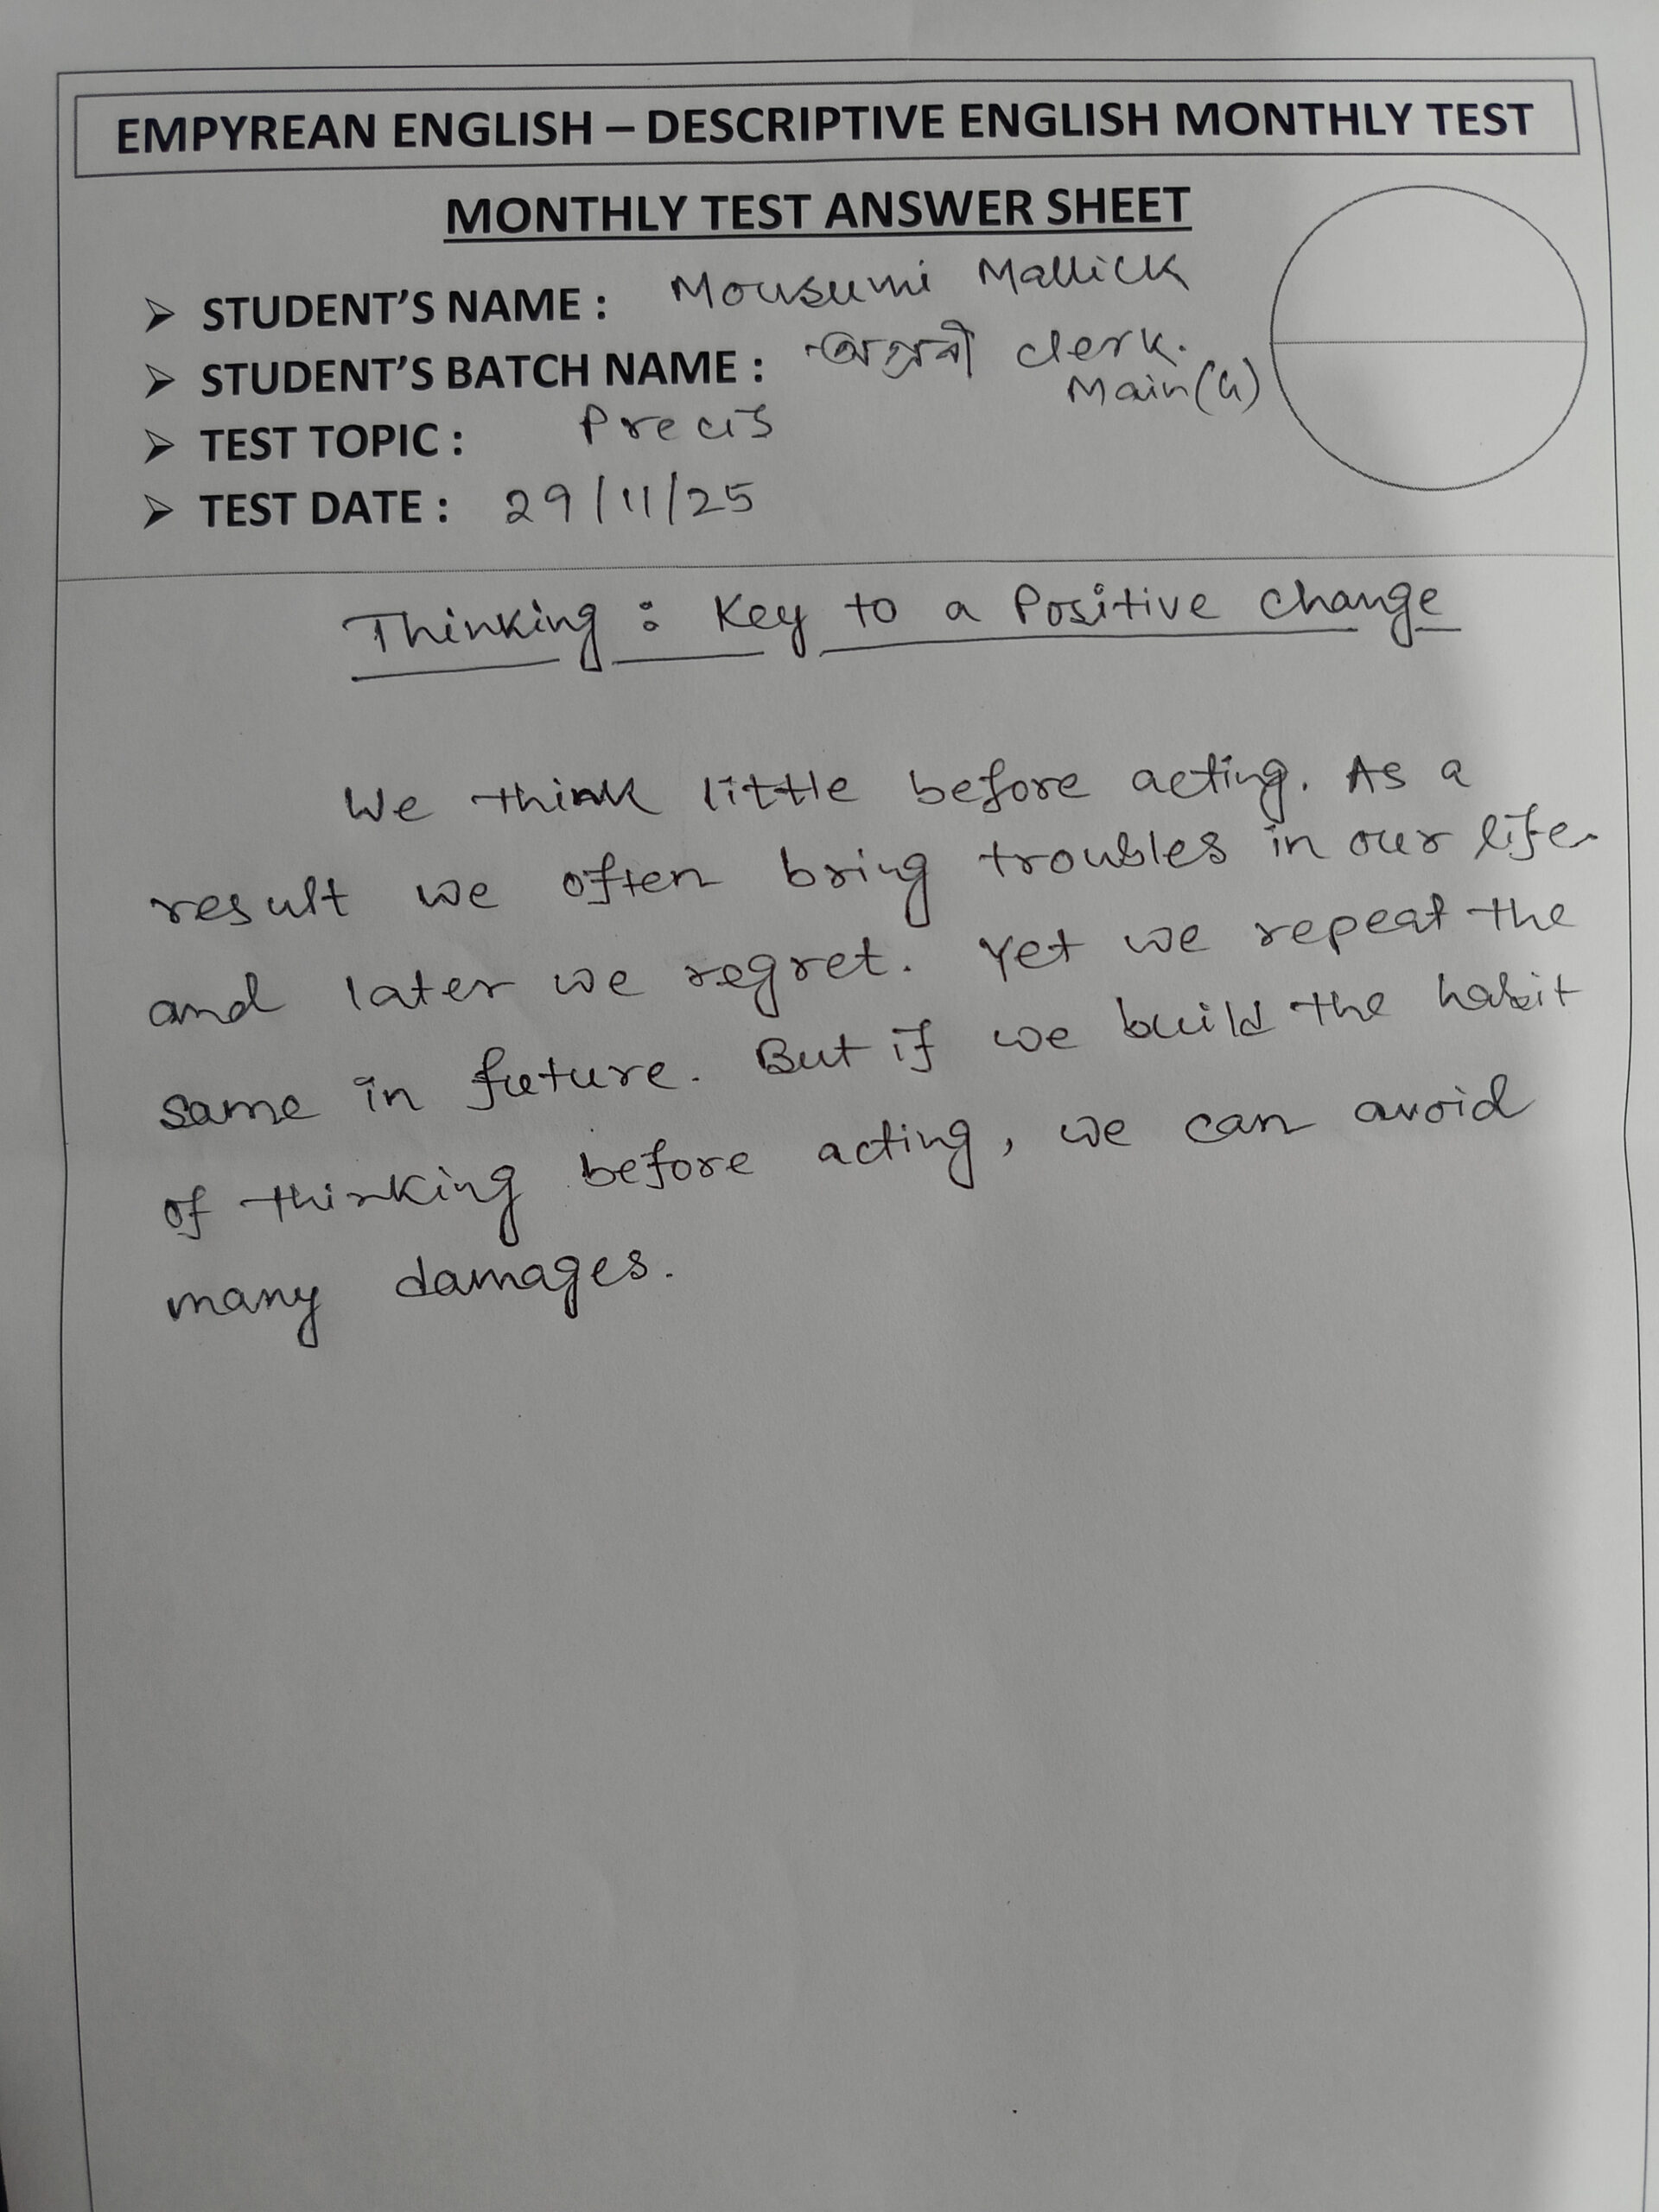 EMPYREAN ENGLISH – DESCRIPTIVE ENGLISH MONTHLY TEST
MONTHLY TEST ANSWER SHEET
➢ STUDENT'S NAME : Mousumi Mallick
➢ STUDENT'S BATCH NAME : অগ্রনী clerk.
Main(G)
➢ TEST TOPIC : Precis
➢ TEST DATE : 29/11/25
Thinking : Key to a Positive Change
We think little before acting. As a
result we often bring troubles in our life
and later we regret. Yet we repeat the
same in future. But if we build the habit
of thinking before acting, we can avoid
many damages.